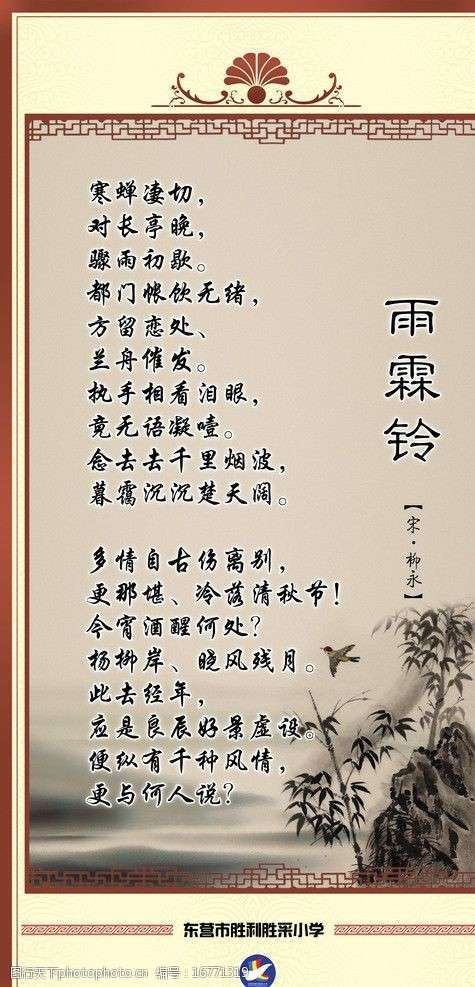 雨霖铃
【宋·柳永】
寒蝉凄切，
对长亭晚，
骤雨初歇。
都门帐饮无绪，
方留恋处、
兰舟催发。
执手相看泪眼，
竟无语凝噎。
念去去千里烟波，
暮霭沉沉楚天阔。
多情自古伤离别，
更那堪、冷落清秋节！
今宵酒醒何处？
杨柳岸、晓风残月。
此去经年，
应是良辰好景虚设。
便纵有千种风情，
更与何人说？
东营市胜利胜采小学
图行天下photophoto.cn 编号：16771319